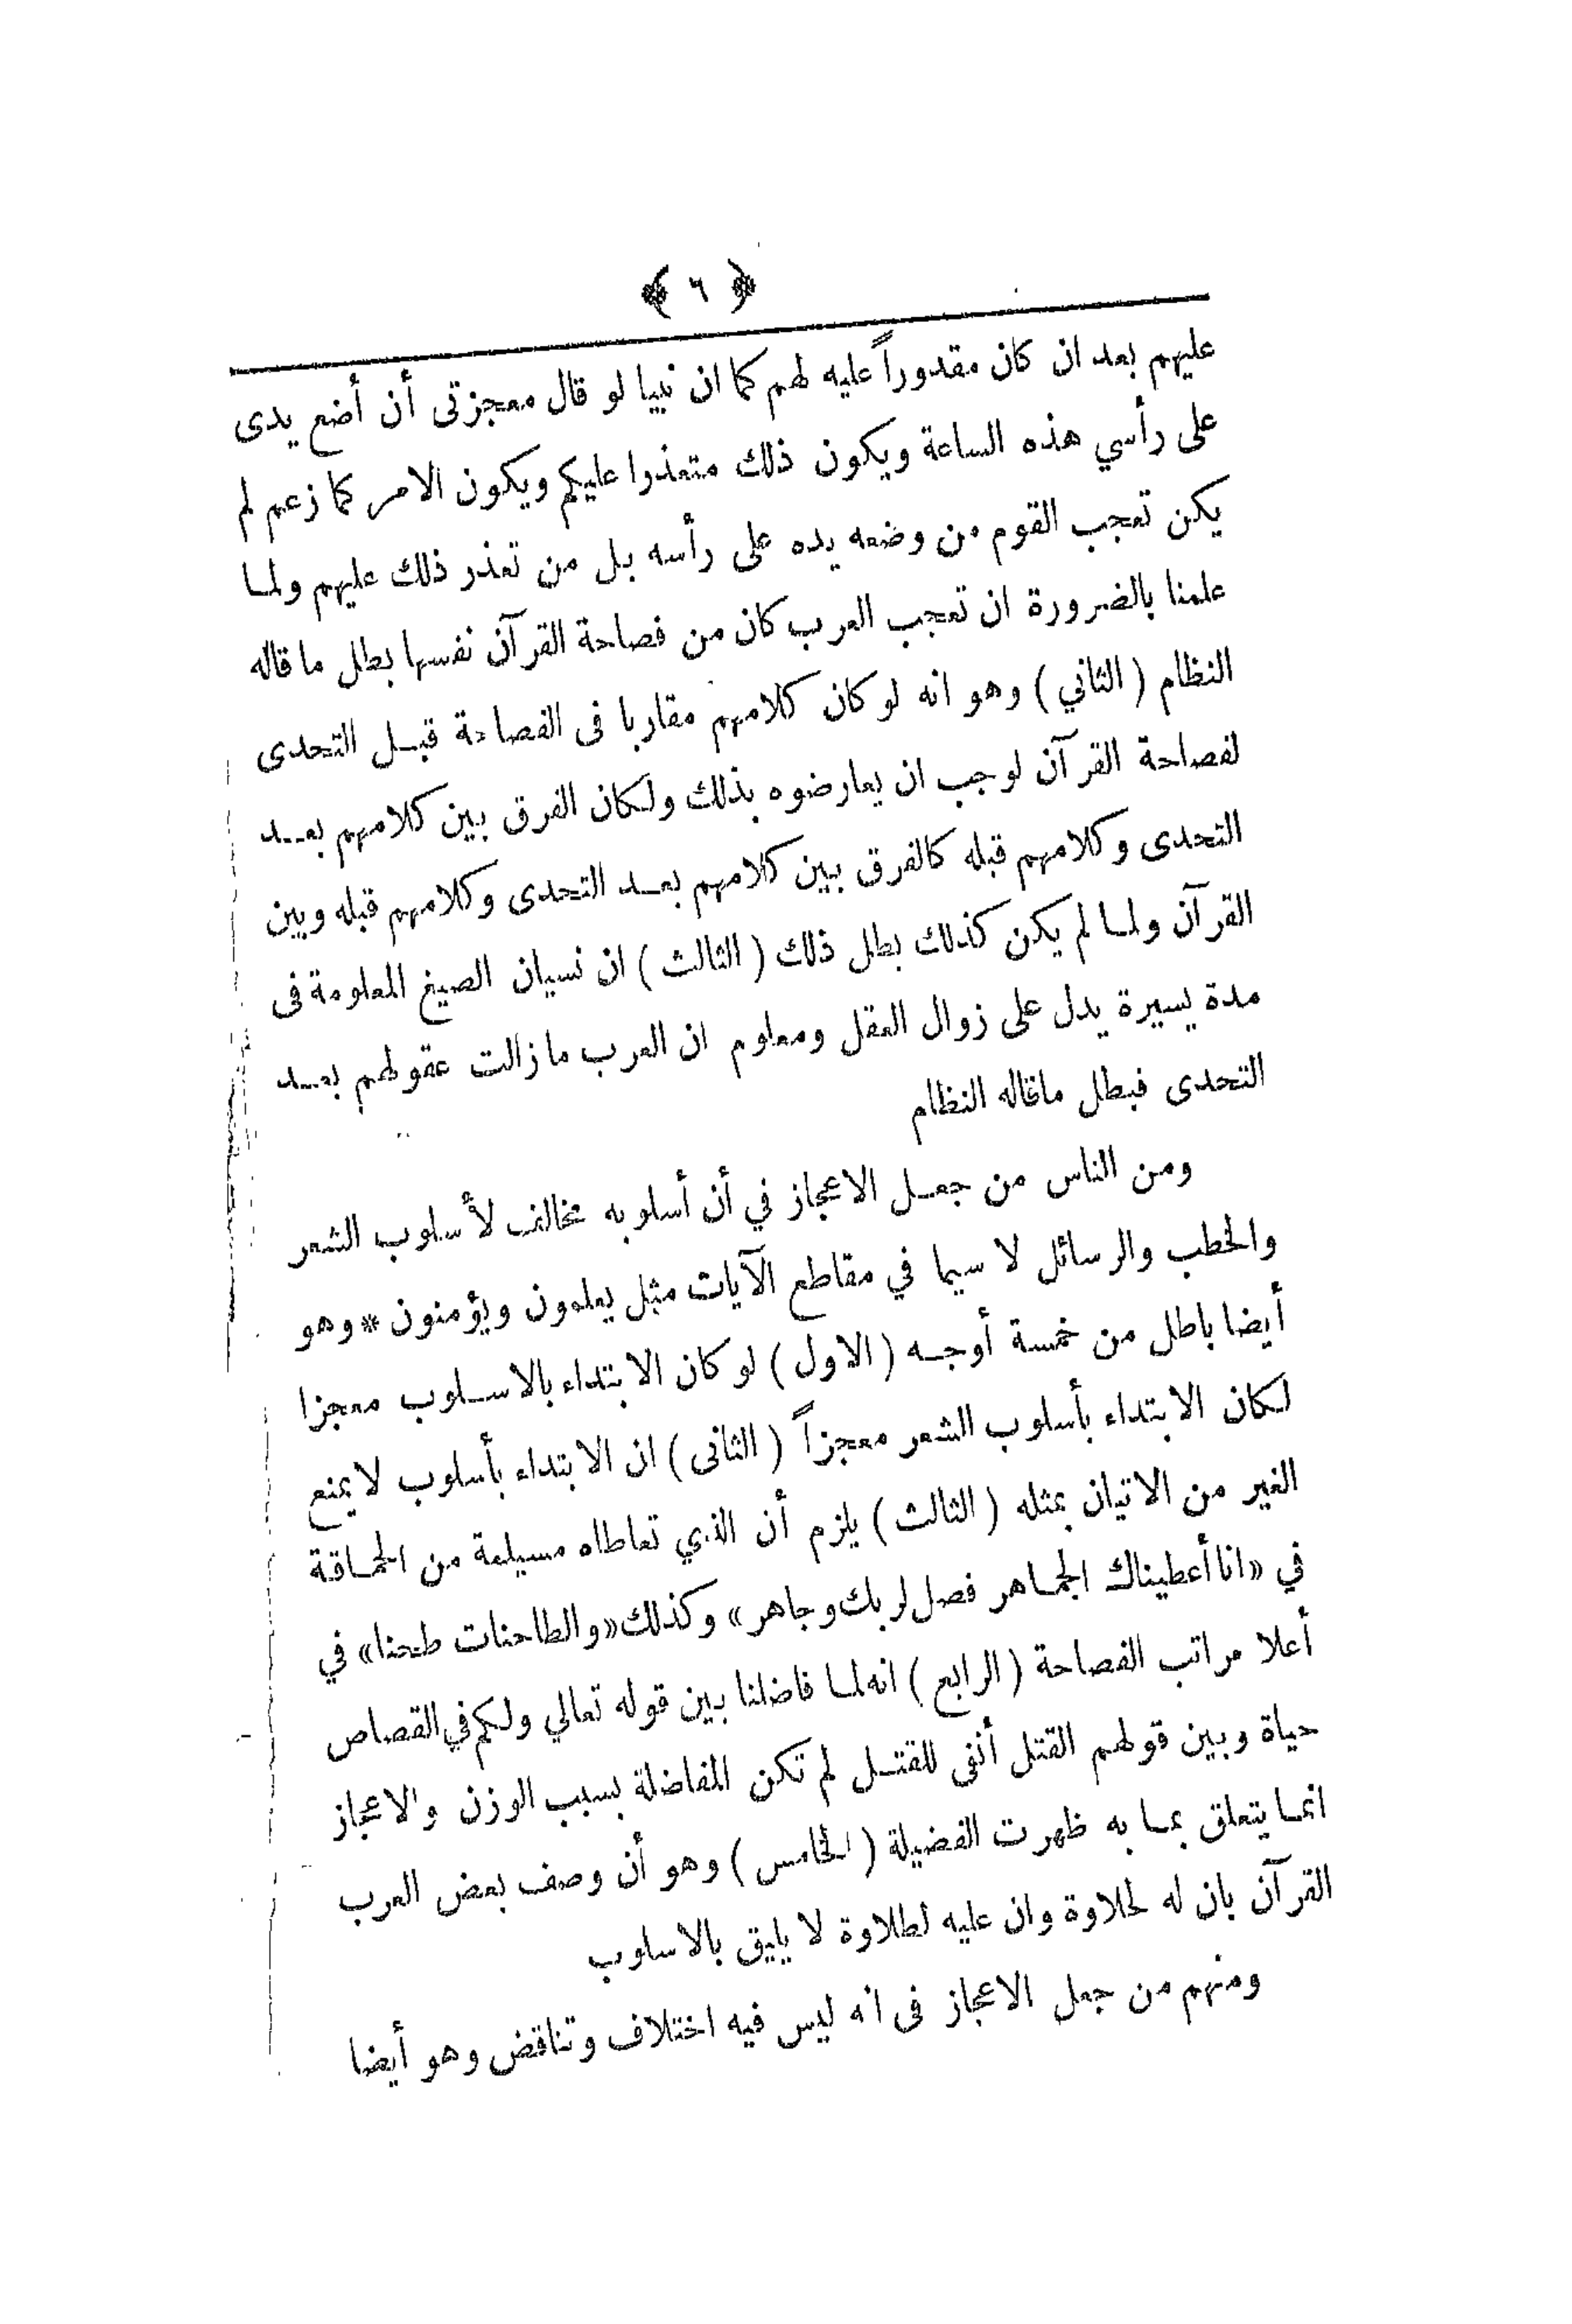 ﴿ ٦ ﴾
عليهم بعد ان كان مقدوراً عليه لهم كما ان نبيا لو قال معجزتى أن أضع يدى
على رأسي هذه الساعة ويكون ذلك متعذرا عليكم ويكون الامر كما زعم لم
يكن تعجب القوم من وضعه يده على رأسه بل من تعذر ذلك عليهم ولما
علمنا بالضرورة ان تعجب العرب كان من فصاحة القرآن نفسها بطل ما قاله
النظام ( الثاني ) وهو انه لو كان كلامهم مقاربا فى الفصاحة قبل التحدى
لفصاحة القرآن لوجب ان يعارضوه بذلك ولكان الفرق بين كلامهم بعد
التحدى وكلامهم قبله كالفرق بين كلامهم بعد التحدى وكلامهم قبله وبين
القرآن ولما لم يكن كذلك بطل ذلك ( الثالث ) ان نسيان الصيغ المعلومة فى
مدة يسيرة يدل على زوال العقل ومعلوم ان العرب ما زالت عقولهم بعد
التحدى فبطل ماقاله النظام
ومن الناس من جعل الاعجاز في أن أسلوبه مخالف لأسلوب الشعر
والخطب والرسائل لا سيما في مقاطع الآيات مثل يعلمون ويؤمنون * وهو
أيضا باطل من خمسة أوجه ( الاول ) لو كان الابتداء بالاسلوب معجزا
لكان الابتداء بأسلوب الشعر معجزاً ( الثانى ) ان الابتداء بأسلوب لا يمنع
الغير من الاتيان بمثله ( الثالث ) يلزم أن الذي تعاطاه مسيلمة من الحماقة
في «انا أعطيناك الجماهر فصل لربك وجاهر» وكذلك «والطاحنات طحنا» في
أعلا مراتب الفصاحة ( الرابع ) انه لما فاضلنا بين قوله تعالي ولكم في القصاص
حياة وبين قولهم القتل أنفى للقتل لم تكن المفاضلة بسبب الوزن والاعجاز
انما يتعلق بما به ظهرت الفضيلة ( الخامس ) وهو أن وصف بعض العرب
القرآن بان له لحلاوة وان عليه لطلاوة لا يليق بالاسلوب
ومنهم من جعل الاعجاز فى انه ليس فيه اختلاف وتناقض وهو أيضا